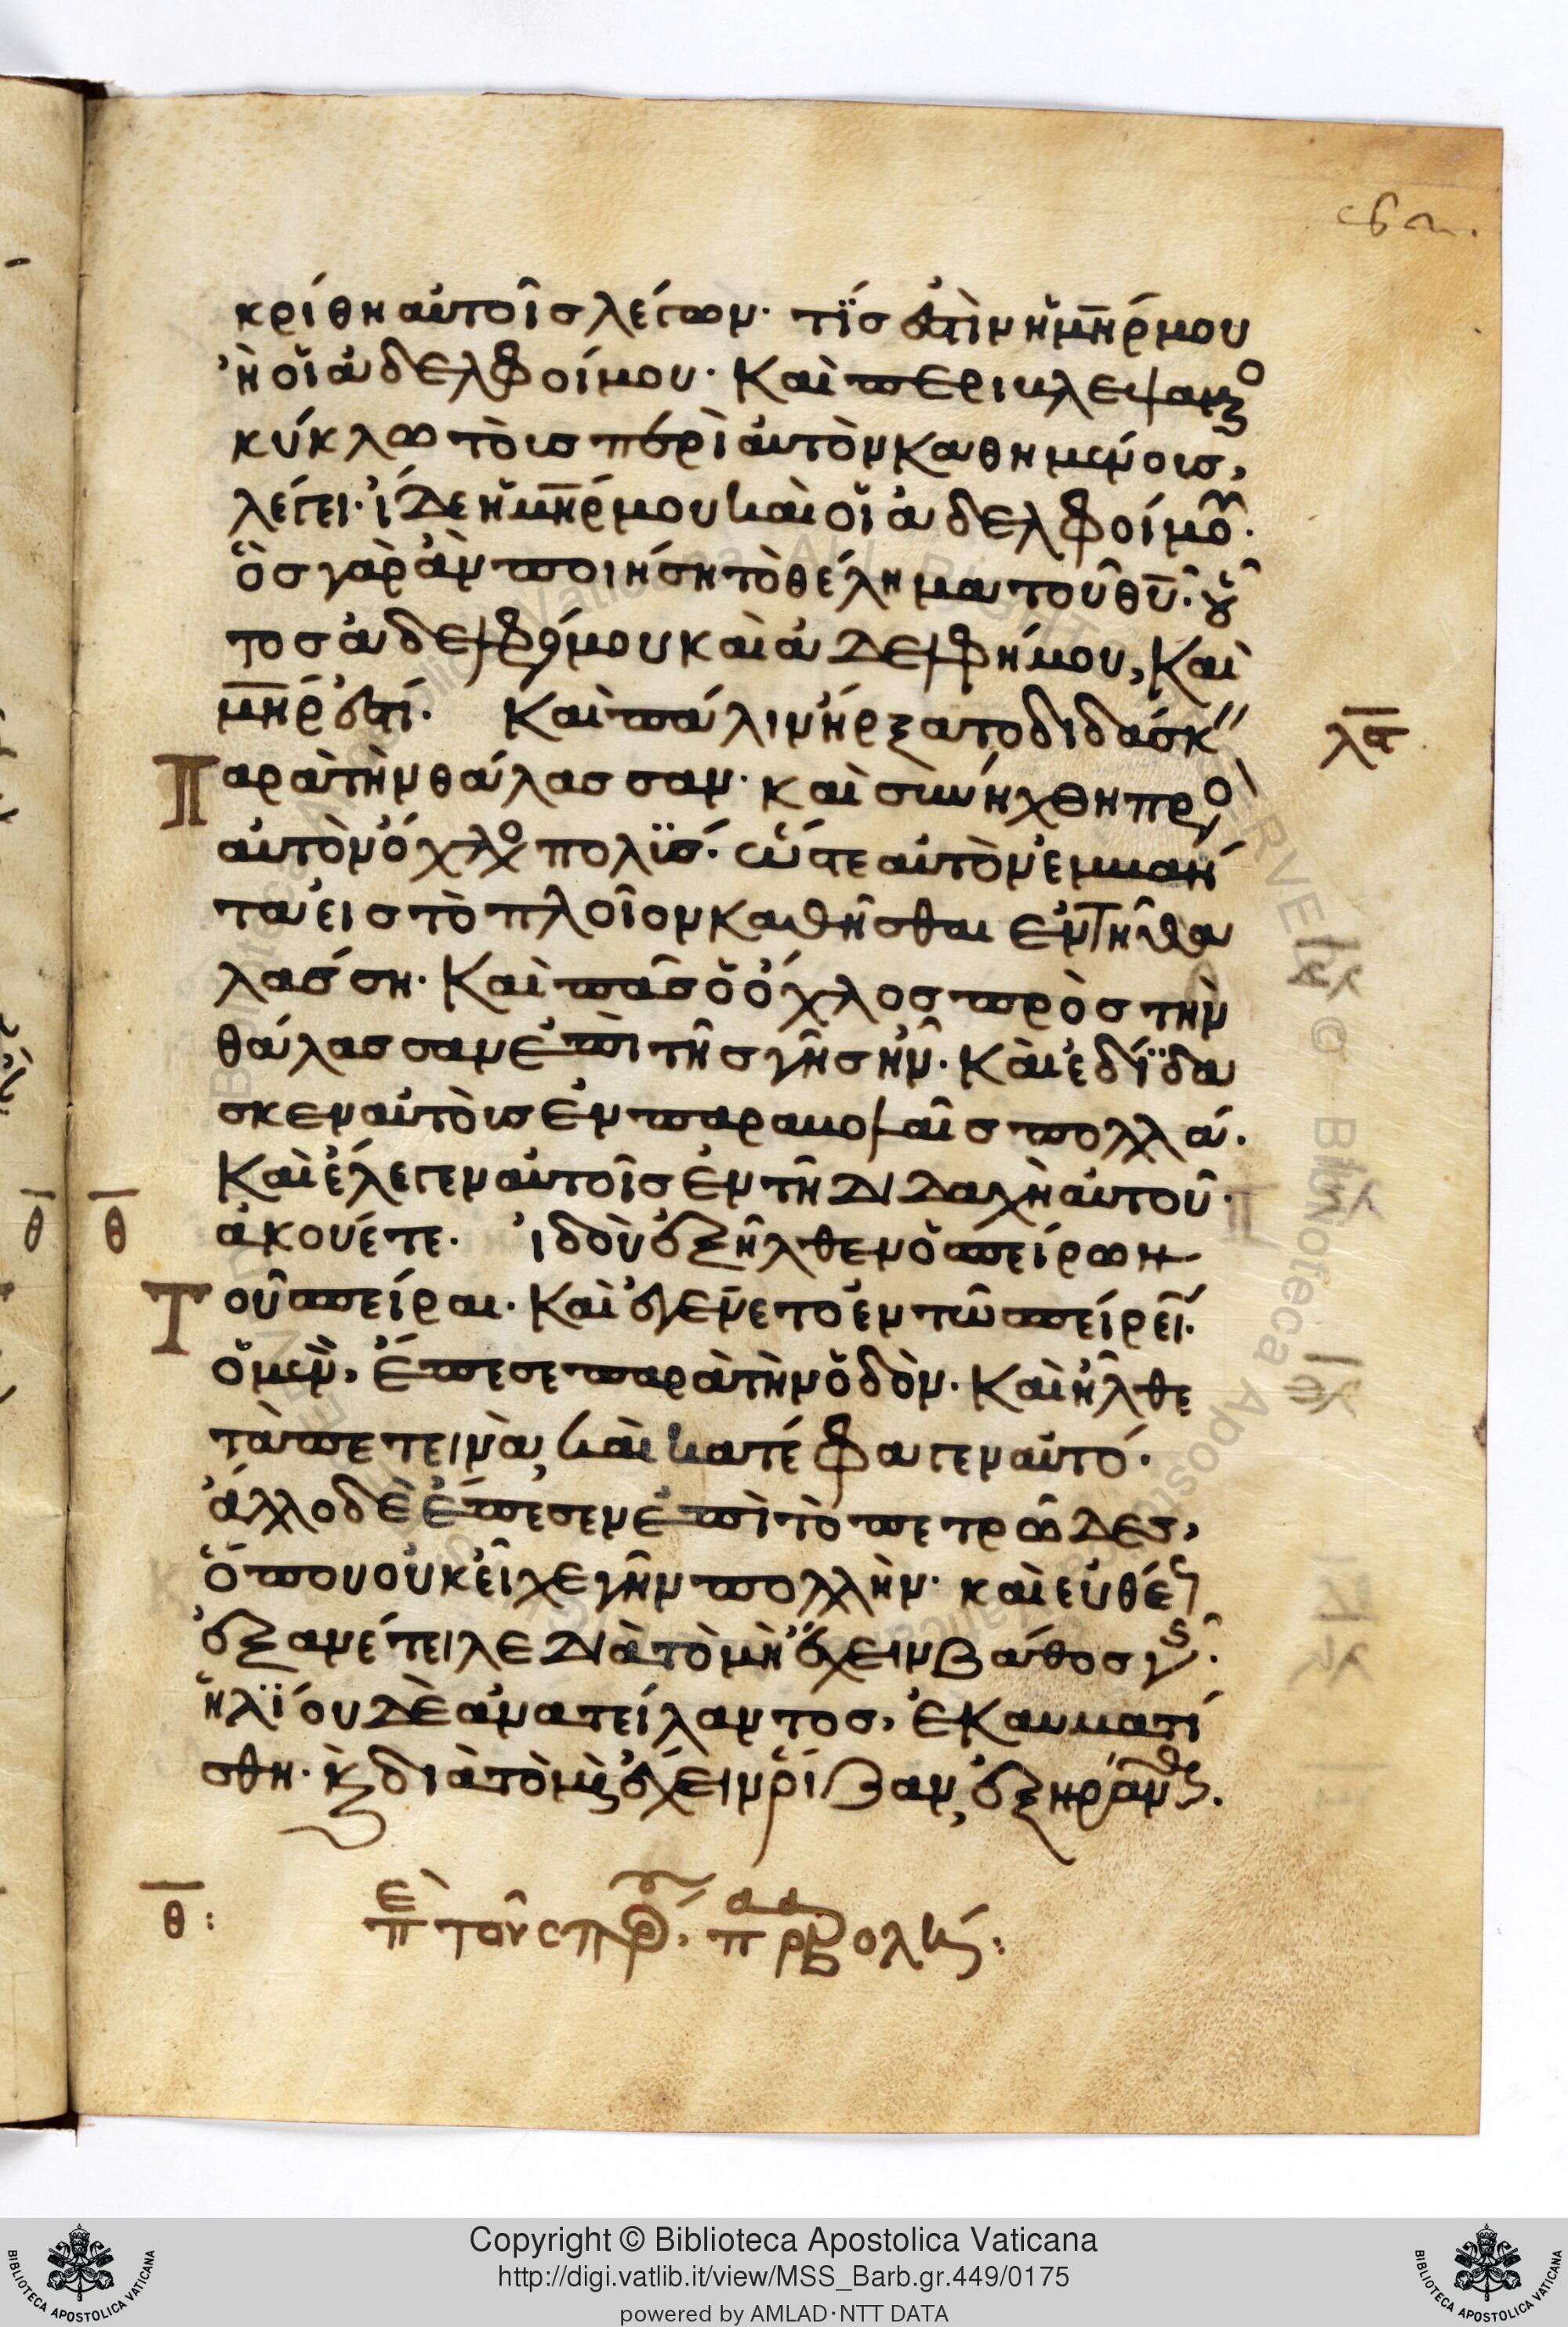 κρίθη αὐτοῖσ λέγων· τίσ ἐστὶν ἡ μ̅η̅ρ μου
ἢ οἱ ἀδελφοί μου· Καὶ περιβλεψάμενο
κύκλω τοὺσ περὶ αὐτὸν καθημένουσ,
λέγει· ἴδε ἡ μ̅η̅ρ μου καὶ οἱ ἀδελφοί μου·
ὃσ γὰρ ἂν ποιήση τὸ θέλημα τοῦ θ̅υ̅· οὗ
τοσ ἀδελφόσ μου καὶ ἀδελφή μου, Καὶ
μ̅η̅ρ ἐστί· Καὶ πάλιν ἤρξατο διδάσκ"
λ̅α̅
Παρὰ τὴν θάλασσαν· καὶ συνήχθη πρὸσ
αὐτὸν ὄχλοσ πολύσ· ὥστε αὐτὸν ἐμβάν
τα εἰσ τὸ πλοῖον καθῆσθαι ἐν τῆ θα
λάσση· Καὶ πᾶσ ὁ ὄχλοσ πρὸσ τὴν
θάλασσαν ἐπὶ τῆσ γῆσ ἦν· Καὶ ἐδίδα
σκεν αὐτοὺσ ἐν παραβολαῖσ πολλά·
Καὶ ἔλεγεν αὐτοῖσ ἐν τῆ διδαχῆ αὐτοῦ·
θ̅ θ̅
ἀκούετε· ἰδοὺ ἐξῆλθεν ὁ σπείρων
Τοῦ σπεῖραι· Καὶ ἐγένετο ἐν τῶ σπείρειν·
ὃ μὲν, ἔπεσε παρὰ τὴν ὁδὸν· Καὶ ἦλθε
τὰ πετεινὰ, καὶ κατέφαγεν αὐτό·
ἄλλο δὲ ἔπεσεν ἐπὶ τὸ πετρῶδεσ,
ὅπου οὐκ εἶχε γῆν πολλὴν· καὶ εὐθέωσ
ἐξανέτειλε διὰ τὸ μὴ ἔχειν βάθοσ γῆσ·
ἡλίου δὲ ἀνατείλαντοσ, ἐκαυματί
σθη· κ̀ διὰ τὸ μὴ ἔχειν ῥίζαν, ἐξηράνθη.
θ̅: ἐπὶ τοῦ σπόρ, παραβολῆσ: